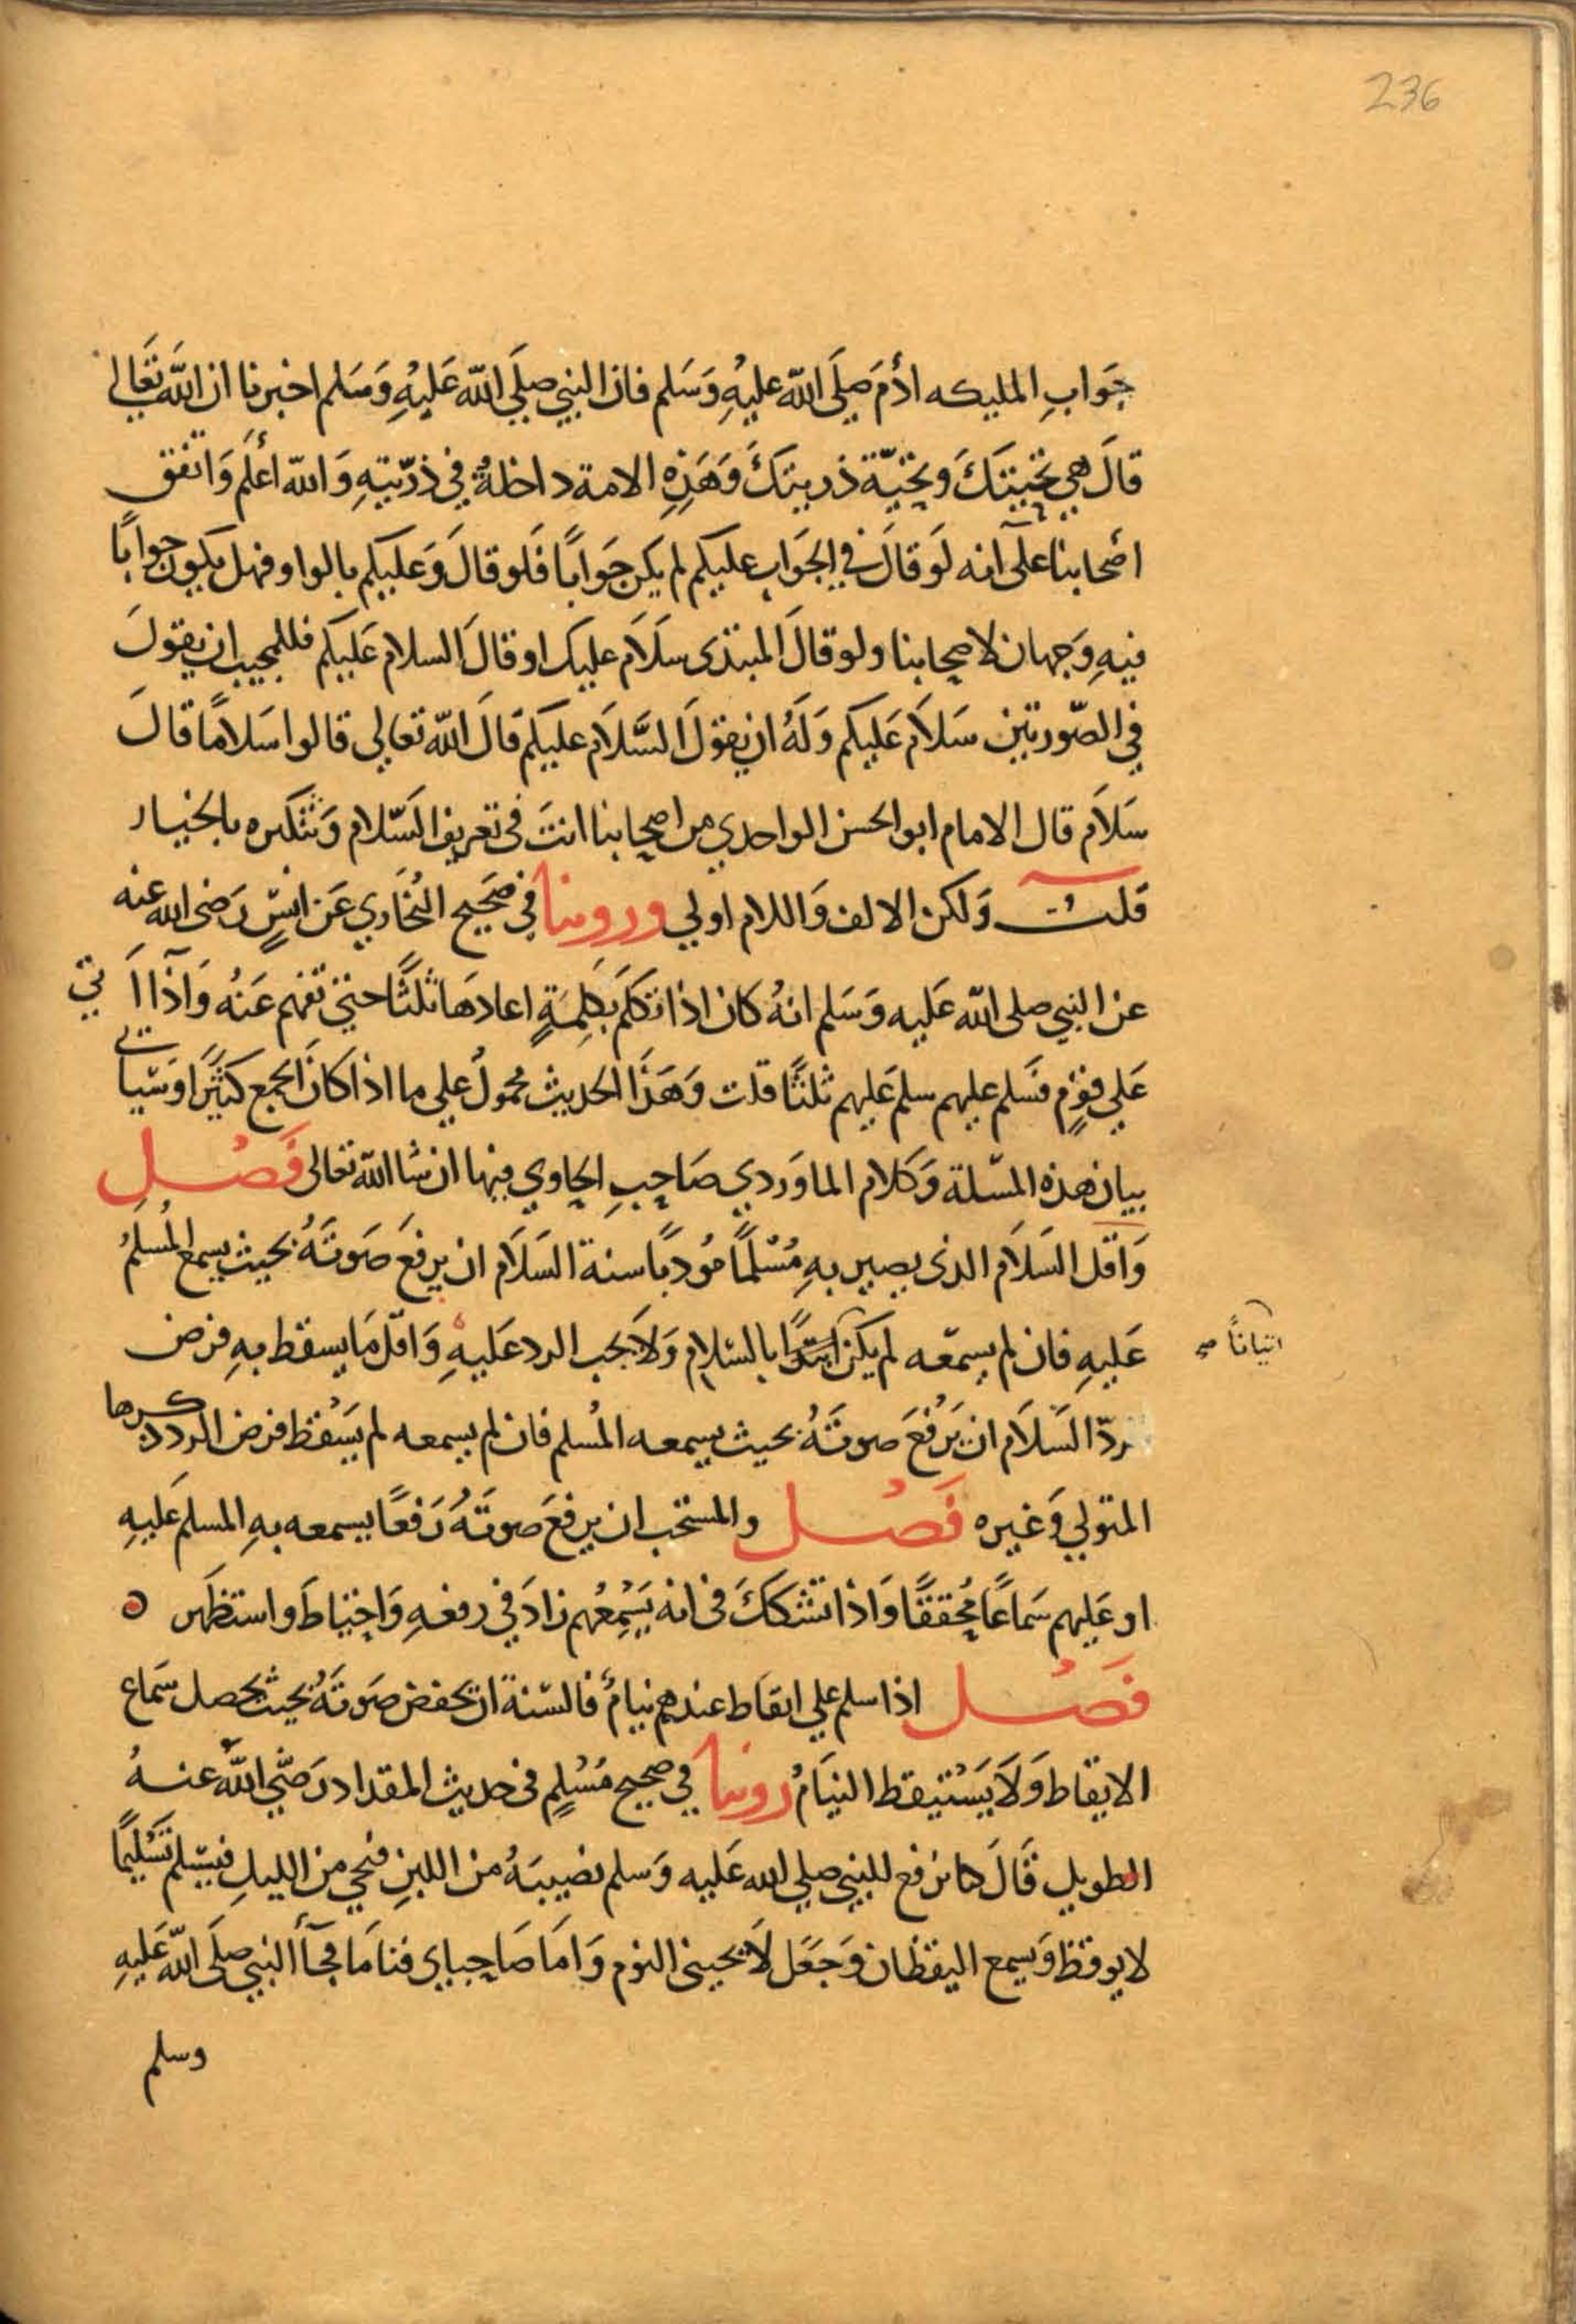 236
جَوَابِ المليكه ادٔمَ صَلَى اللّه عليْهِ وَسَلم فان النبي صلَي اللّه عَليْهِ وَسَلم اخبرنا ان اللَّه تَعَالي
قالَ هي تحيتكَ وتحيّة ذريتكَ وَهَذِهِ الامة داخلةٌ في ذرّيتهِ وَاللّه أعلَم وَاتفق
اصْحابنا على آنه لَو قالَ في الجوَاب عليكم لم يكن جوَاباً فلو قالَ وَعليكم بالواو فهل يكون جواباً
فيهِ وَجهان لاصحابنا ولو قالَ المبتدى سلَام عليك او قالَ السلام عَليكم فللمجيب ان يقولَ
في الصّورتين سَلَام عَليكم وَلَهُ ان يقولَ السَّلَام عليكم قالَ اللّه تعالي قالوا سَلامًا قالَ
سَلَام قال الامام ابو الحسن الواحدي من اصحابنا انتَ في تعريف السّلام وَتنكيره بالخيار
قلتُ وَلكن الالف وَاللام اولي وروينا في صَحيح البُخاري عَن انسٍ رَضى الله عنه
عن النبي صلى اللّه عَليه وَسَلم انهُ كان اذا تكلمَ بكلِمةٍ اعادهَا ثلثًا حتي تفهم عَنهُ وَآذا اَتي
عَلي قومٍ فسَلم عليهم سلم عَليهم ثلثًا قلت وَهَذَا الحديث محمولُ علي ما اذا كانَ الجمع كثيرًا وَسَياتى
بيان هذه المسّلة وَكلام الماوَردي صَاحِبِ الحاوي فيها ان شا اللّه تعالى فَصْل
وَاقل السَلَام الذى يصير بهِ مُسْلمًا مُودياً سنة السَلَام ان يرفعَ صَوتَهُ بحيث يسمع المُسلمُ
عَليهِ فان لم يسمّعه لم يكن ابتدًا بالسّلام وَلَا يجب الرد عَليهِ وَاقلّ مَا يسقط بهِ فرض
اتيانًا صح
ردّ السَلَام ان يَرْفعَ صوتَهُ بحيث يسمعه المُسلم فان لم يسمعه لم يَسْقط فرض الرد ذكرها
المتولي وَغيره فَصْل والمستحب ان يرفعَ صوتَهُ رَفعًا يسمعه بهِ المسلم عَليهِ
او عَليهم سَماعًا مُحققًا وَاذا تشككَ في انه يَسْمِعُهم زادَ في رفعهِ وَاحتياطَ واستظهَر ٥
فَصْل اذا سلم علي ايقاط عندهم نيامٌ فالسّنة ان يحفض صَوتَهُ بحيث يحصل سَماع
الايقاط وَلَا يَسْتيقط النيَامُ روينا في صحيح مُسْلمٍ في حديث المقداد رَضّي اللّه عنهُ
الطويل قَالَ كنا نرفع للنبي صلي الله عَليه وَسلم نصيبَهُ من اللبنِ فيجي من الليلِ فيسّلم تَسْليمًا
لا يوقظ وَيسمع اليقظان وَجَعَل لَا يجيني النوم وَامَا صَاحباي فنامَا فجَآ النبي صلَى اللّه عَليهِ
وسلم